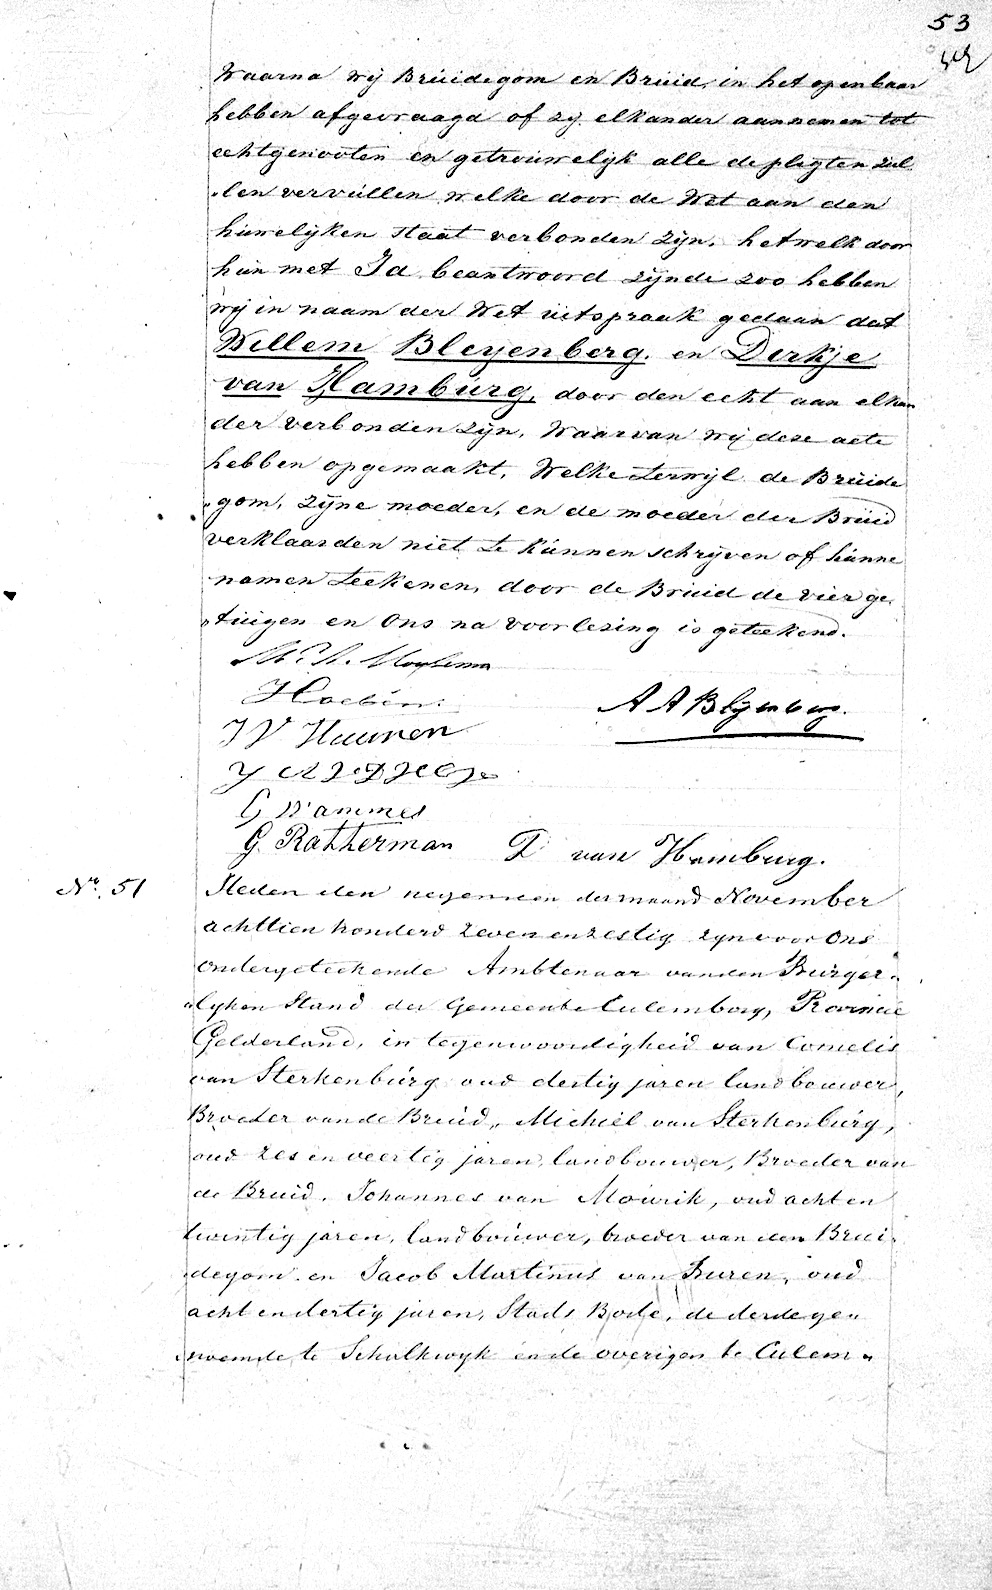 53
Waarna wij Bruidegom en Bruid, in het openbaar
hebben afgevraagd of zij elkander aannemen tot
echtgenooten en getrouwelijk alle de pligten zul
„len vervullen welke door de Wet aan den
huwelijken staat verbonden zijn. hetwelk door
hun met Ja beantwoord zijnde zoo hebben
wij in naam der Wet uitspraak gedaan dat
Willem Bleyenberg. en Dirkje
van Hamburg, door den echt aan elkan
der verbonden zijn. Waarvan wij deze acte
hebben opgemaakt. Welke terwijl de Bruide
„gom, zijne moeder, en de moeder der Bruid
verklaarden niet te kunnen schrijven of hunne
namen teekenen, door de Bruid de vier ge„
„tuigen en Ons na voorlezing is geteekend.
A A Blijenberg.
J V Huunen
G. Ratherman D van Hamburg.
No. 51
Heden den negentien der maand November
achttien honderd zeven en zestig zijn voor Ons
ondergeteekende Ambtenaar van den Burger„
„lyken Stand der Gemeente Culemborg, Provincie
Gelderland, in tegenwoordigheid van Cornelis
van Sterkenburg oud dertig jaren landbouwer,
Broeder van de Bruid, Michiel van Sterkenburg,
oud zes en veertig jaren, landbouwer, Broeder van
de Bruid. Johannes van Mourik, oud acht en
twintig jaren, landbouwer, broeder van den Brui„
degom. en Jacob Martinus van Buren, oud
acht en dertig jaren, Stads Bode, de derde gen
„noemde te Schalkwyk en de overigen te Culem„